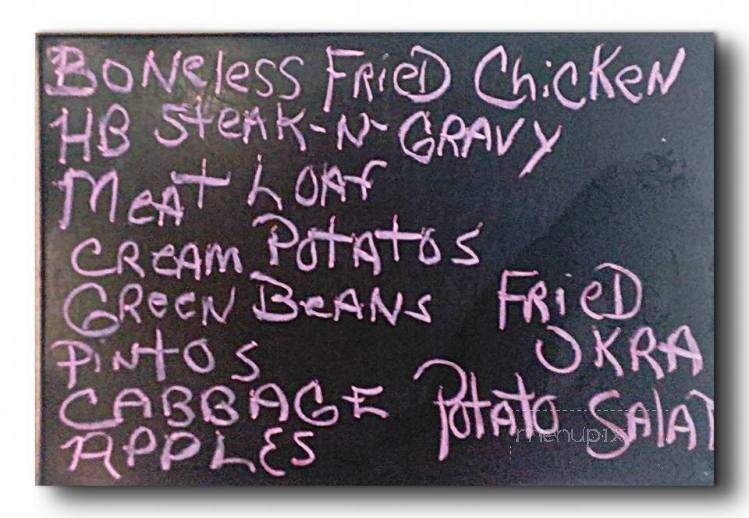 BONeless FRieD ChiCKeN
HB STeAK-N-GRAVY
MeAT LOAf
CReAM POTATOS
GReeN BeANS
PiNTOS
CABBAGE
APPLES
FRieD
OKRA
POTATO SALAT
menupix